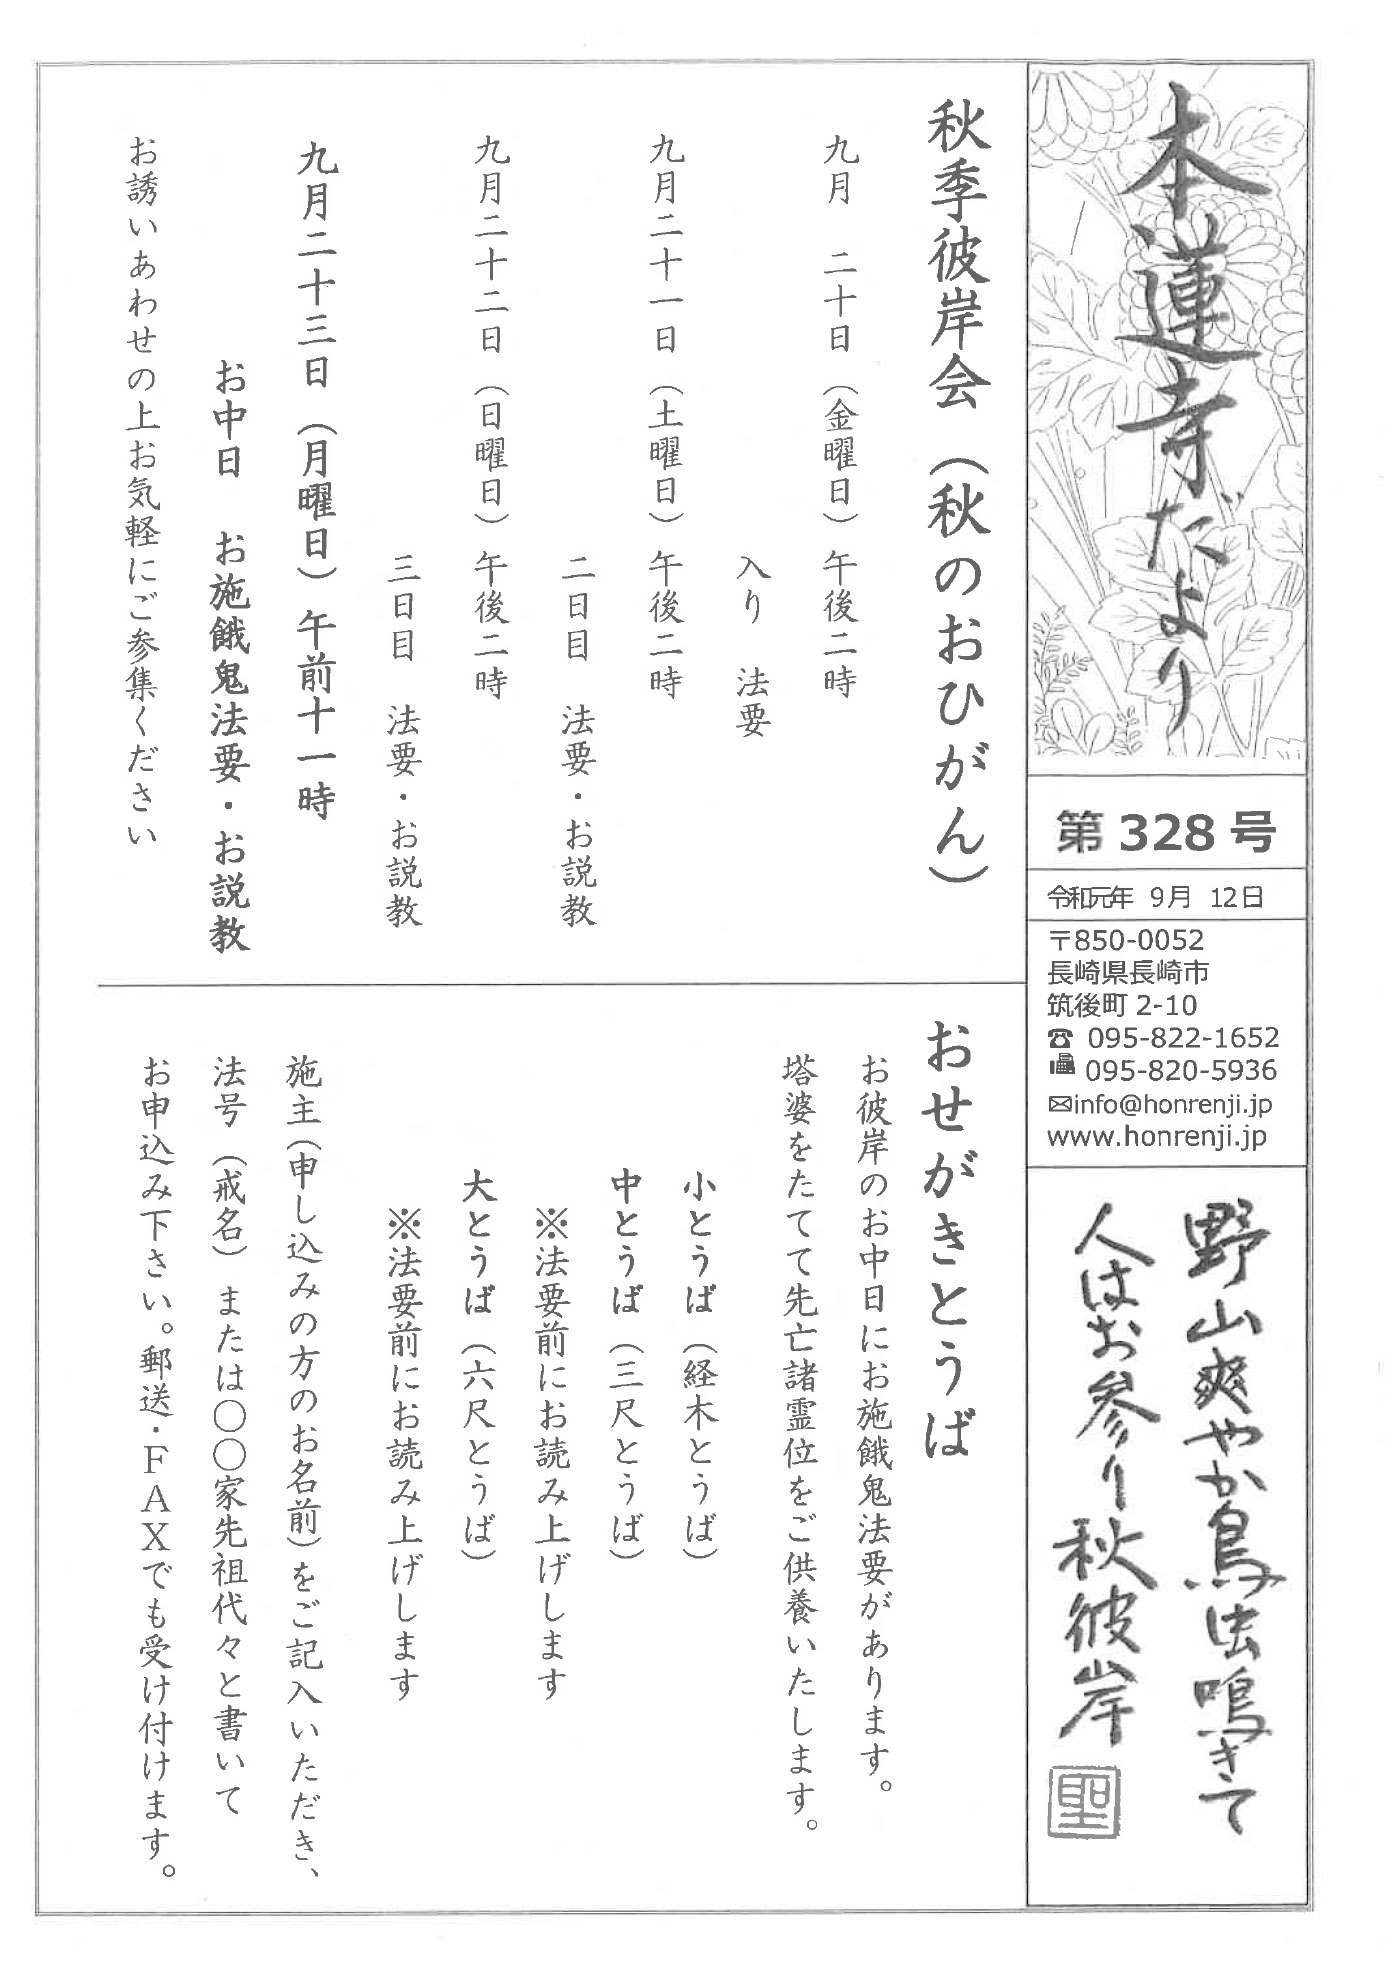 本蓮寺だより
第328号
令和元年 9月 12日
〒850-0052
長崎県長崎市
筑後町 2-10
☎ 095-822-1652
095-820-5936
✉info@honrenji.jp
www.honrenji.jp
野山爽やか鳥虫鳴きて
人はお参り秋彼岸
聖
秋季彼岸会（秋のおひがん）
九月　二十日（金曜日）午後二時
入り　法要
九月二十一日（土曜日）午後二時
二日目　法要・お説教
九月二十二日（日曜日）午後二時
三日目　法要・お説教
九月二十三日（月曜日）午前十一時
お中日　お施餓鬼法要・お説教
お誘いあわせの上お気軽にご参集ください
おせがきとうば
お彼岸のお中日にお施餓鬼法要があります。
塔婆をたてて先亡諸霊位をご供養いたします。
小とうば（経木とうば）
中とうば（三尺とうば）
※法要前にお読み上げします
大とうば（六尺とうば）
※法要前にお読み上げします
施主（申し込みの方のお名前）をご記入いただき、
法号（戒名）または〇〇家先祖代々と書いて
お申込み下さい。郵送・FAXでも受け付けます。